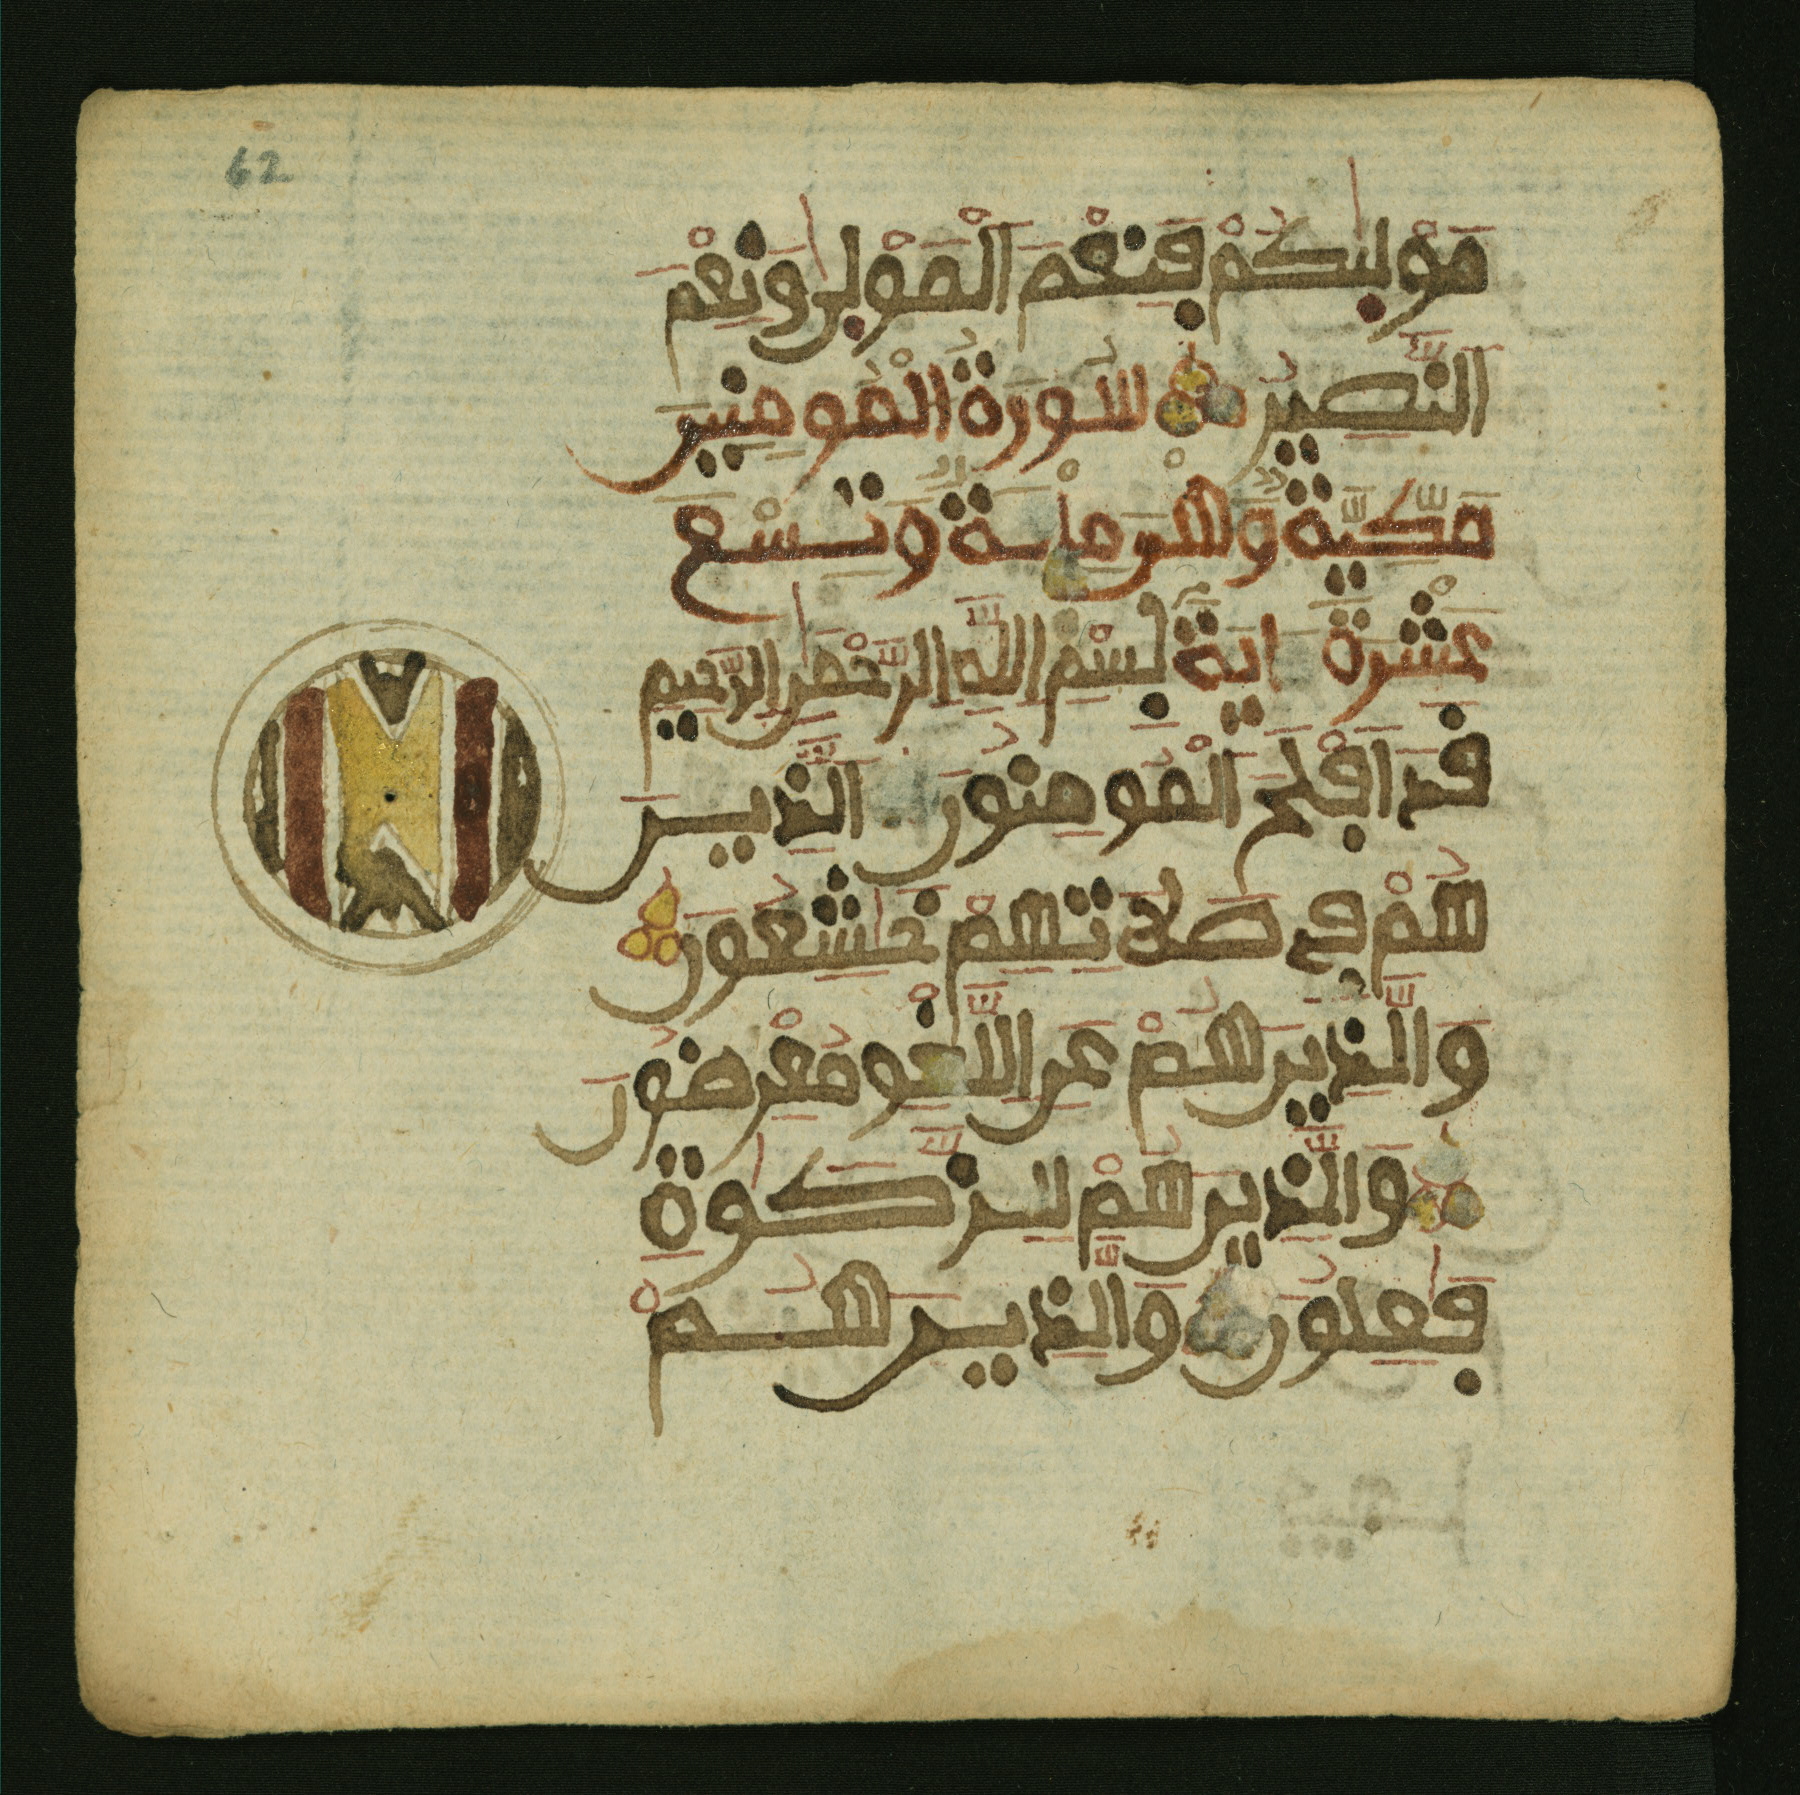 62
مَوْلَىٰكُمْ فَنِعْمَ اَلْمَوْلَىٰ وَنِعْمَ
اَلنَّصِيرُ سُورَةُ الْمُومِنِينَ
مَكِّيَّةٌ وَهْىَ مِاْئَةٌ وَتِسْعَ
عَشْرَةَ ايَةً بِسْمِ اللَّهِ الرَّحْمَٰنِ الرَّحِيمِ
قَدَ اَفْلَحَ اَلْمُومِنُونَ اَلَّذِينَ
هُمْ فِي صَلَاتِهِمْ خَٰشِعُونَ
وَالَّذِينَ هُمْ عَنِ اللَّغْوِ مُعْرِضُونَ
وَالَّذِينَ هُمْ لِلزَّكَوٰةِ
فَٰعِلُونَ وَالَّذِينَ هُمْ